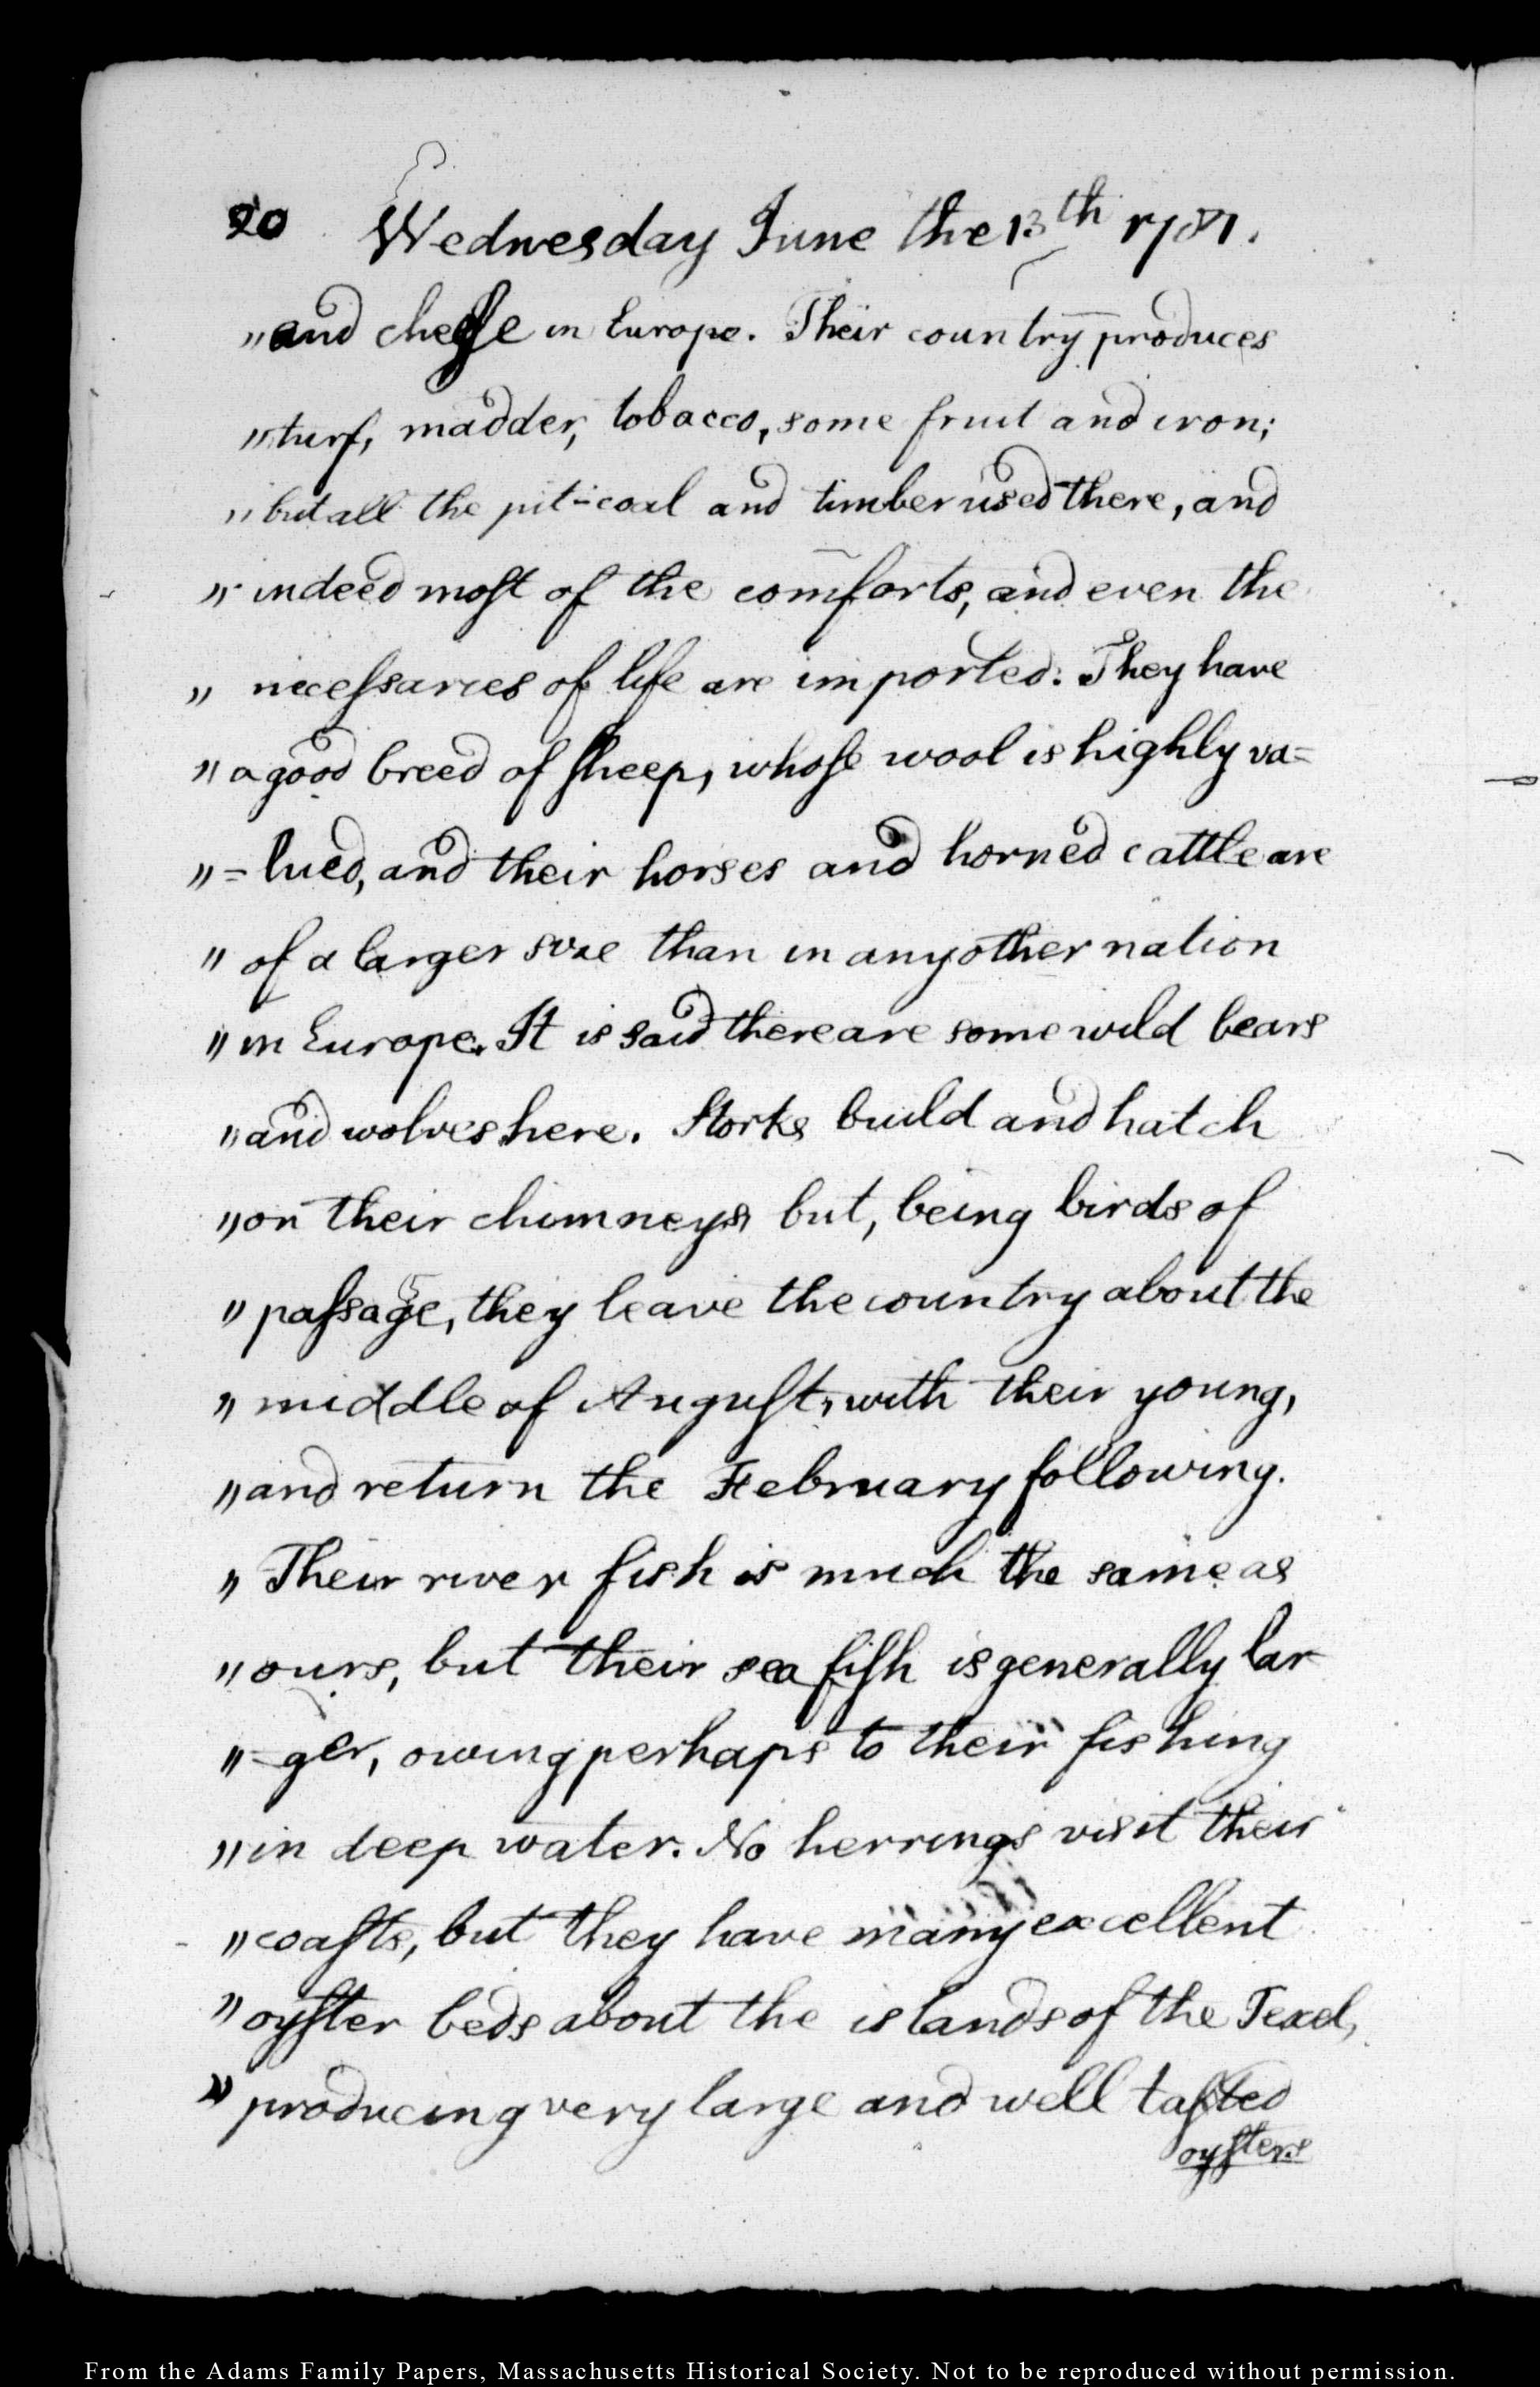 20 Wednesday June the 13th 1781.
"and cheese in Europe. Their country produces
"turf, madder, tobacco, some fruit and iron;
"but all the pit-coal and timber used there, and
"indeed most of the comforts, and even the
"necessaries of life are imported. They have
"a good breed of sheep, whose wool is highly va=
"=lued, and their horses and horned cattle are
"of a larger size than in any other nation
"in Europe. It is said there are some wild bears
"and wolves here. Storks build and hatch
"on their chimneys, but, being birds of
"passage, they leave the country about the
"middle of August, with their young,
"and return the February following.
"Their river fish is much the same as
"ours, but their sea fish is generally lar-
"-ger, owing perhaps to their fishing
"in deep water. No herrings visit their
"coasts, but they have many excellent
"oyster beds about the islands of the Texel,
"producing very large and well tasted
oysters
From the Adams Family Papers, Massachusetts Historical Society. Not to be reproduced without permission.